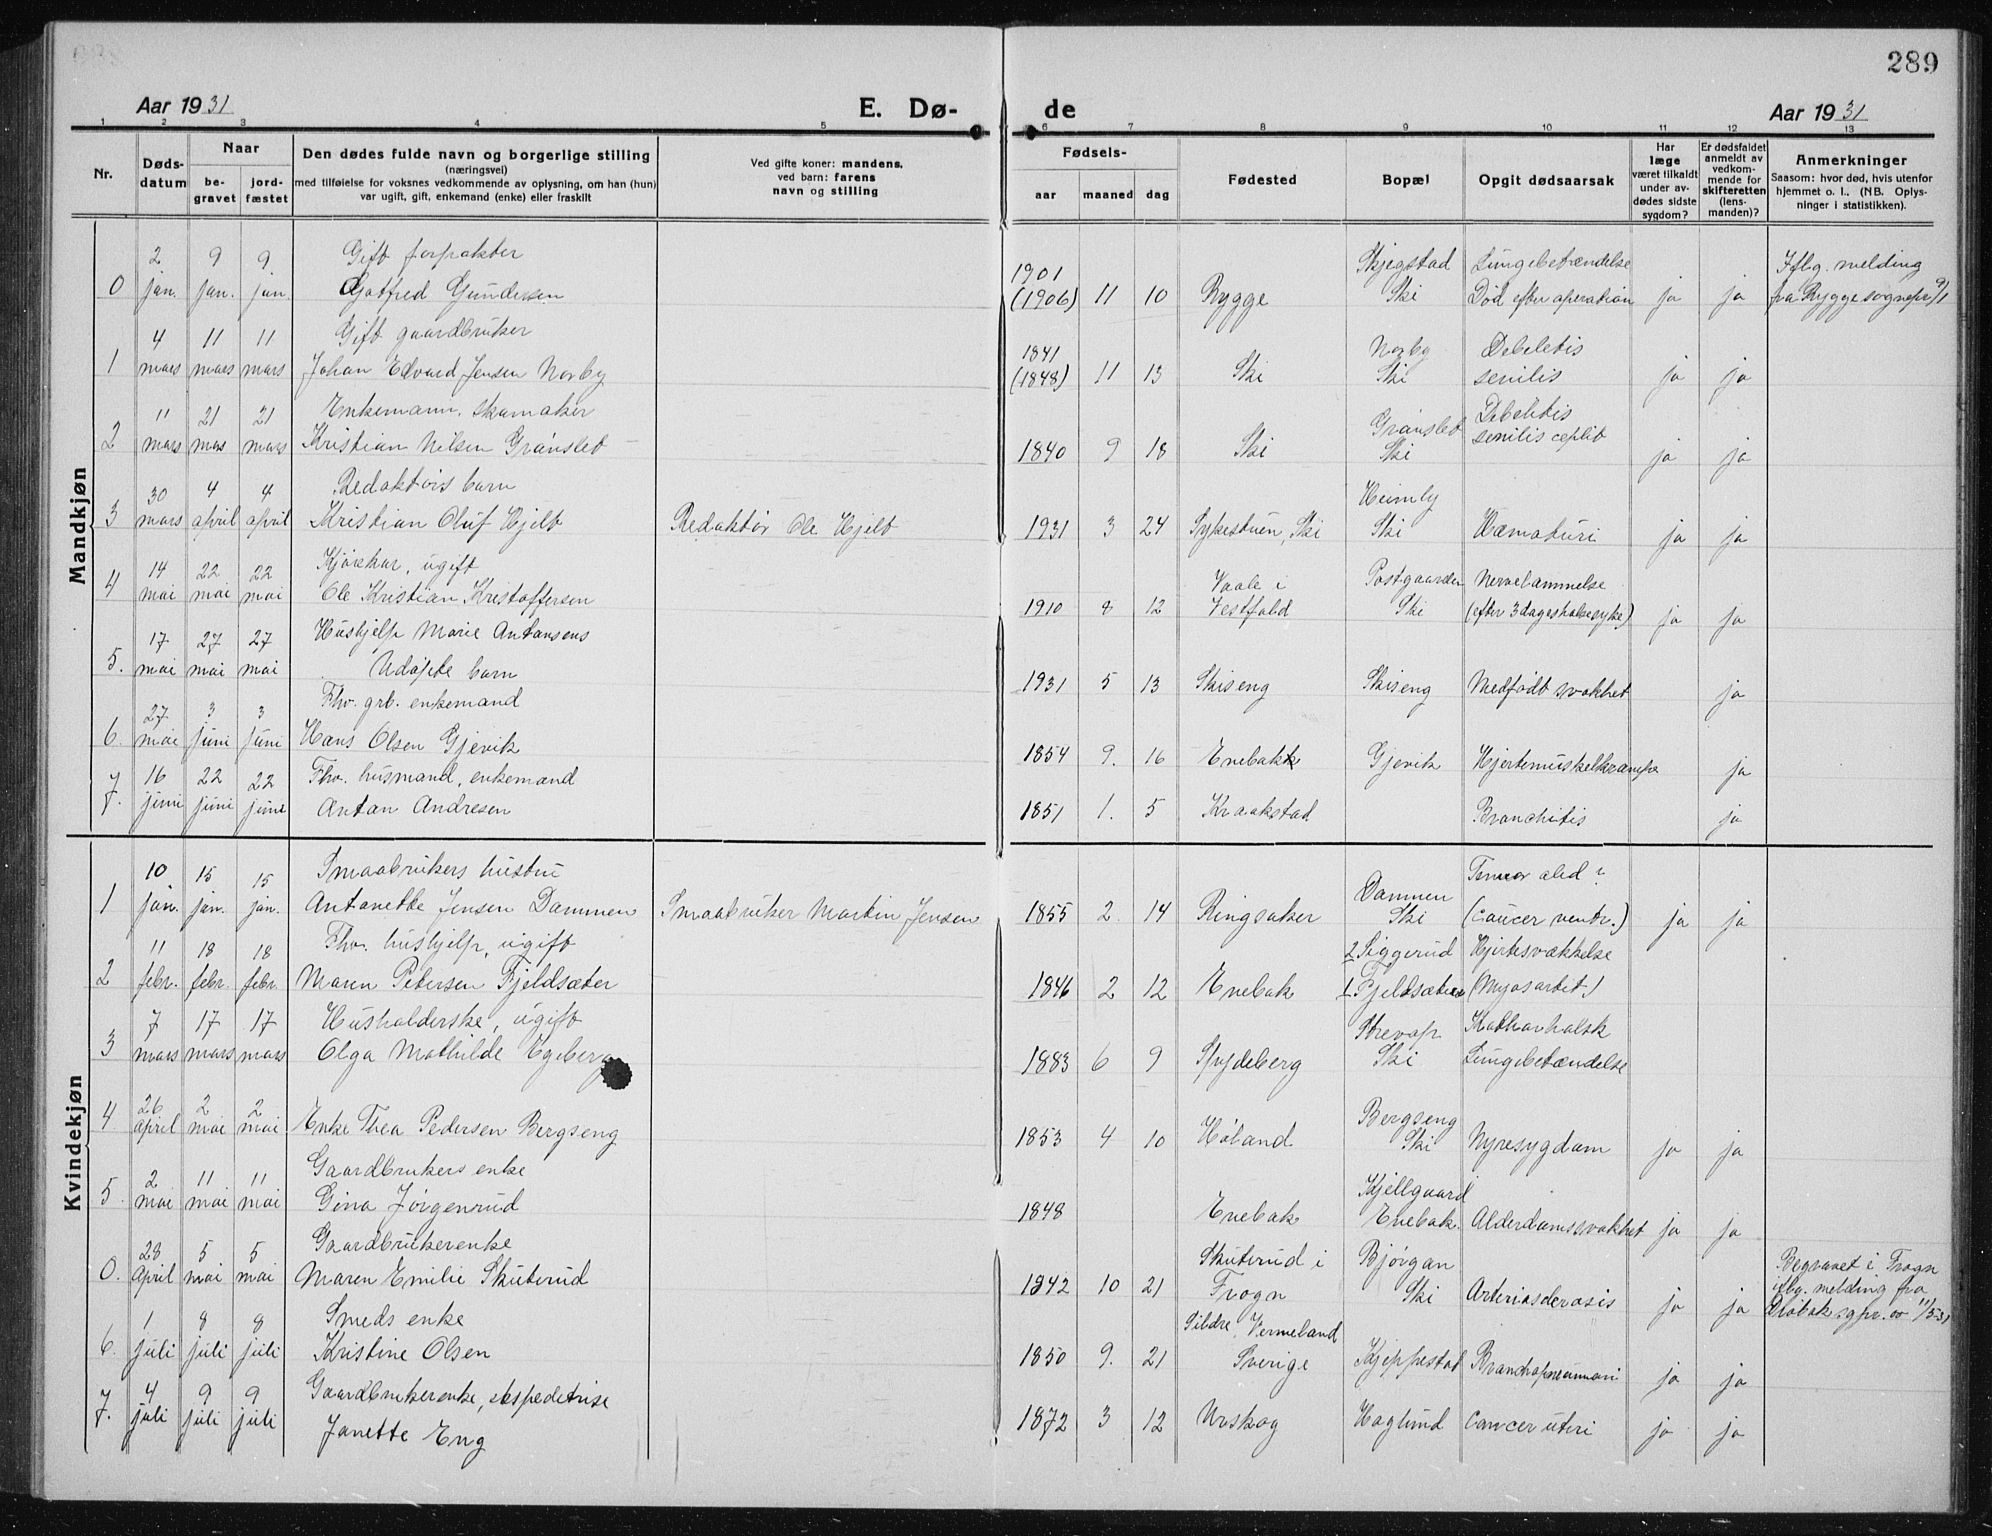 289
Aar 1931 E. Dø- de Aar 1931
1 2 3 4 5 6 7 8 9 10 11 12 13
Nr. Døds-datum Naar be-gravet jord-fæstet Den dødes fulde navn og borgerlige stilling (næringsvei) med tilføielse for voksnes vedkommende av oplysning, om han (hun) var ugift, gift, enkemand (enke) eller fraskilt Ved gifte koner: mandens, ved barn: farens navn og stilling Fødsels- aar maaned dag Fødested Bopæl Opgit dødsaarsak Har læge været tilkaldt under av-dødes sidste sygdom? Er dødsfaldet anmeldt av vedkom-mende for skifteretten (lens-manden)? Anmerkninger Saasom: hvor død, hvis utenfor hjemmet o. l., (NB. Oplys-ninger i statistikken).
Mandkjøn
2 9 9 Gift forpakter 1901 Skjegstad Lungebetændelse Iflg. melding
0 jan. jan. jan Gotfred Gundersen (1906) 11 10 Rygge Ski Død efter operation ja ja fra Rygge sognepr 9/1
4 11 11 Gift gaardbruker 1841 Norby Debeletis
1 mars mars mars Johan Edvard Jensen Norby (1848) 11 13 Ski Ski senilis ja ja
11 21 21 Enkemann, skomaker Grønslet Debeletis
2 mars mars mars Kristian Nilsen Grønslet 1840 9 18 Ski Ski senilis ja ja
30 4 4 Redaktørs barn Heimly
3 mars april april Kristian Oluf Hjelt Redaktør Ole Hjelt 1931 3 24 Sykestuen, Ski Ski Hæmaturi ja ja
14 22 22 ugift Vaale i Postgaarden Nervelammelse
4 mai mai mai Ole Kristian Kristoffersen 1910 8 12 Vestfold Ski (efter 3 dages halsesyke) ja ja
17 27 27 Hushjelp Marie Antonsens
5. mai mai mai Udøpte barn 1931 5 13 Skiseng Skiseng Medfødt svakhet ja
27 3 3 Fhv. grb. enkemand
6. mai juni juni Hans Olsen Gjevik 1854 9. 16 Enebakk Gjevik Hjertemuskelkrampe ja
16 22 22 Fhv. husmand, enkemand
7. juni juni juni Anton Andresen 1851 1. 5 Kraakstad Bronchitis ja
Kvindekjøn
10 15 15 Smaabrukers hustru Dammen Tumor abd ?
1 jan. jan. jan. Antonette Jensen Dammen Smaabruker Martin Jensen 1855 2. 14 Ringsaker Ski (Cancer ventr.) ja ja
11 18 18 Fhv. hushjelp, ugift 2 Siggerud Hjertesvækkelse
2 febr. febr. febr. Maren Petersen Fjeldsæter 1846 2 12 Enebak 1 Fjeldsæter (Myosarbit.) 
7 17 17 Husholderske, ugift Ktathavhalsk
3 mars mars mars Olga Mathilde Egeberg 1883 6 9 Spydeberg Ski Lungebetændelse
26 2 2 Bergseng
4. april mai mai Enke Thea Pedersen Bergseng 1853 4 10 Høland Ski Nyresygdom ja ja
2 11 11 Gaardbrukers enke Kjellgaard
5. mai mai mai Gina Jørgensrud 1848 Enebak Enebak. Alderdomssvakhet ja ja
28 5 5 Gaardbrukerenke Skuterud i Bjørgan Begravet i Frogn
0. april mai mai Maren Emilie Skuterud 1842 10 21 Frogn Ski Arteriosclerosis ja ja iflg. melding fra
Drøbak sgpr. av 11/5 31
1 8 8 Smeds enke Sildre, Vermeland
6. juli juli juli Kristine Olsen 1850 9. 21 Sverige Kjeppestad Bronchopneumoni ja ja
4 9 9 Gaardbrukerenke, ekspeditrise
7. juli juli juli Janette Eng 1872 3 12 Urskog Haglund Cancer uteri ja ja